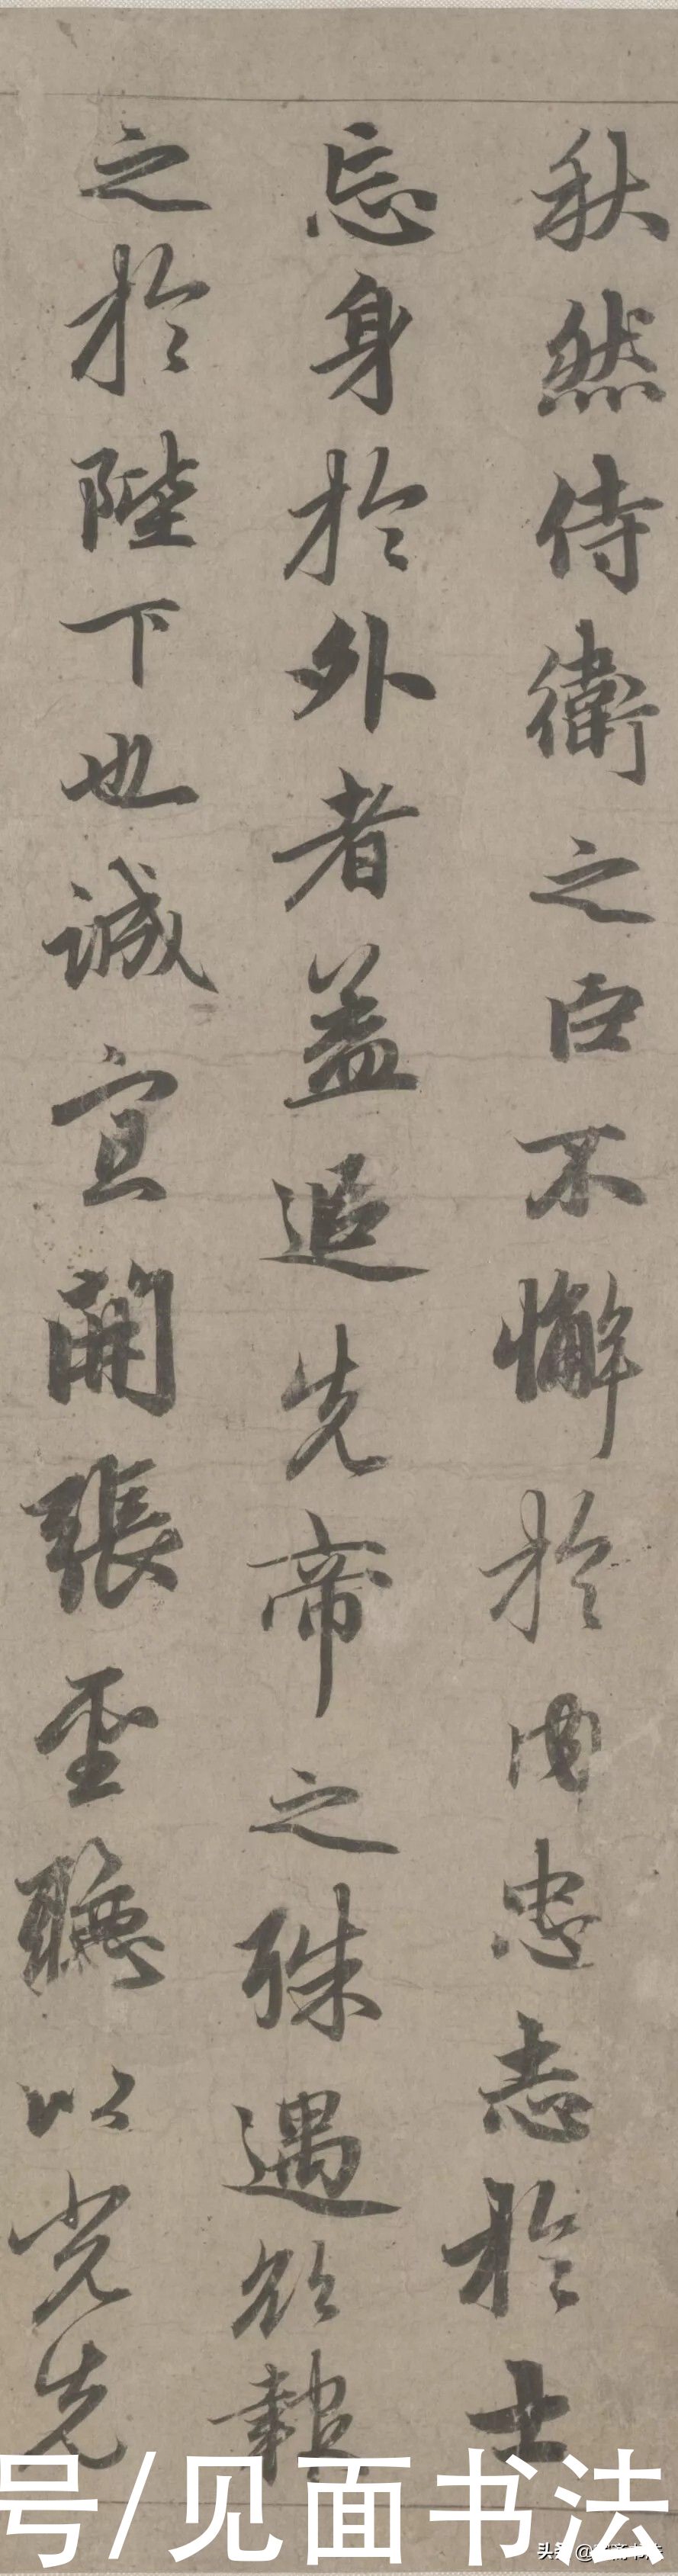 秋然侍衛之臣不懈於内忠志於士
忘身於外者盖追先帝之殊遇欲報
之於陛下也誠宜開張聖聽以光先
号/见面书法
头条 @